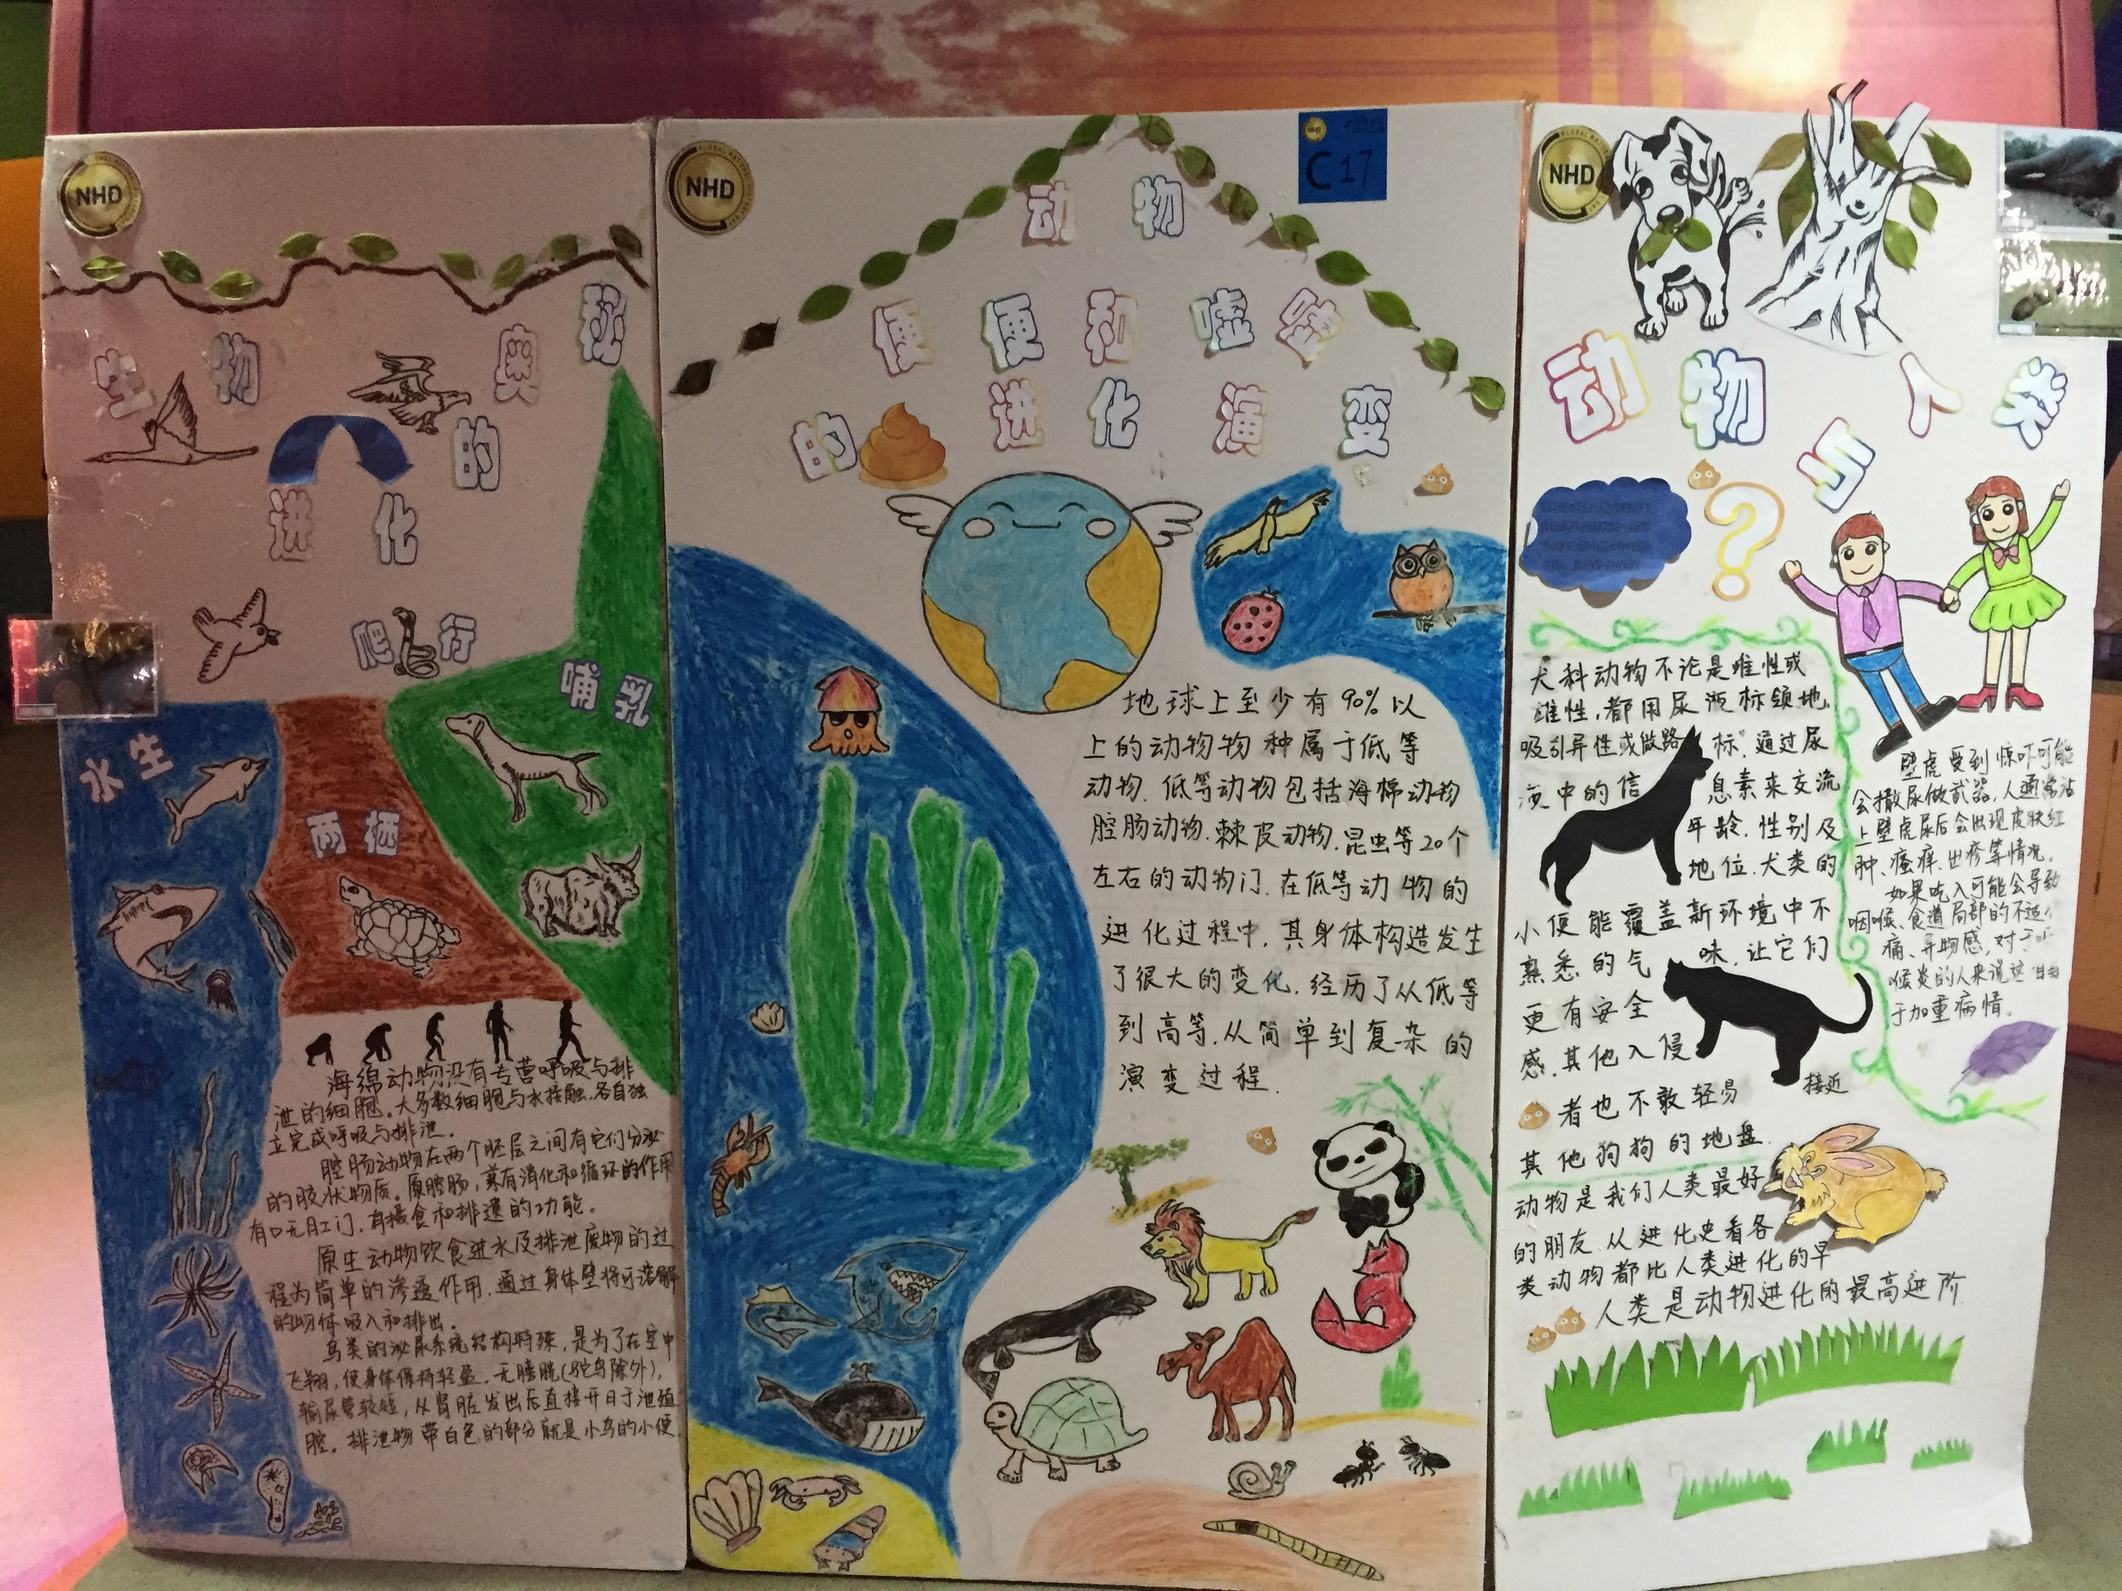 NHD
生物的奥秘
进化
爬行
哺乳
水生
两栖
海绵动物没有专营呼吸与排
泄的细胞。大多数细胞与水接触,各自独
立完成呼吸与排泄.
腔肠动物在两个胚层之间有它们分泌
的胶状物质。原腔肠,兼有消化和循环的作用
有口无肛门.有摄食和排遗的功能。
原生动物饮食进水及排泄废物的过
程为简单的渗透作用.通过身体壁将可溶解
的物体吸入和排出.
鸟类的泌尿系统结构特殊,是为了在空中
飞翔,使身体保持轻盈.无膀胱(鸵鸟除外),
输尿管较短,从肾脏发出后直接开口于泄殖
腔.排泄物带白色的部分就是小鸟的小便.
NHD
C17
动物
便便和嘘嘘
的进化演变
地球上至少有90%以
上的动物物种属于低等
动物.低等动物包括海棉动物
腔肠动物.棘皮动物.昆虫等20个
左右的动物门.在低等动物的
进化过程中,其身体构造发生
了很大的变化.经历了从低等
到高等.从简单到复杂的
演变过程.
NHD
动物与人类
?
犬科动物不论是雌性或
雄性,都用尿液标领地,
吸引异性或做路标".通过尿
液中的信息素来交流
年龄.性别及
地位.犬类的
小便能覆盖新环境中不
熟悉的气味.让它们
更有安全
感.其他入侵
者也不敢轻易接近
其他狗狗的地盘.
动物是我们人类最好
的朋友.从进化史看各
类动物都比人类进化的早
人类是动物进化的最高进阶.
壁虎受到惊吓可能
会撒尿做武器,人通常沾
上壁虎尿后会出现皮肤红
肿、瘙痒.出疹等情况.
如果吃入可能会导致
咽喉、食道局部的不适
痛、异物感,对于
喉炎的人来说这
于加重病情.